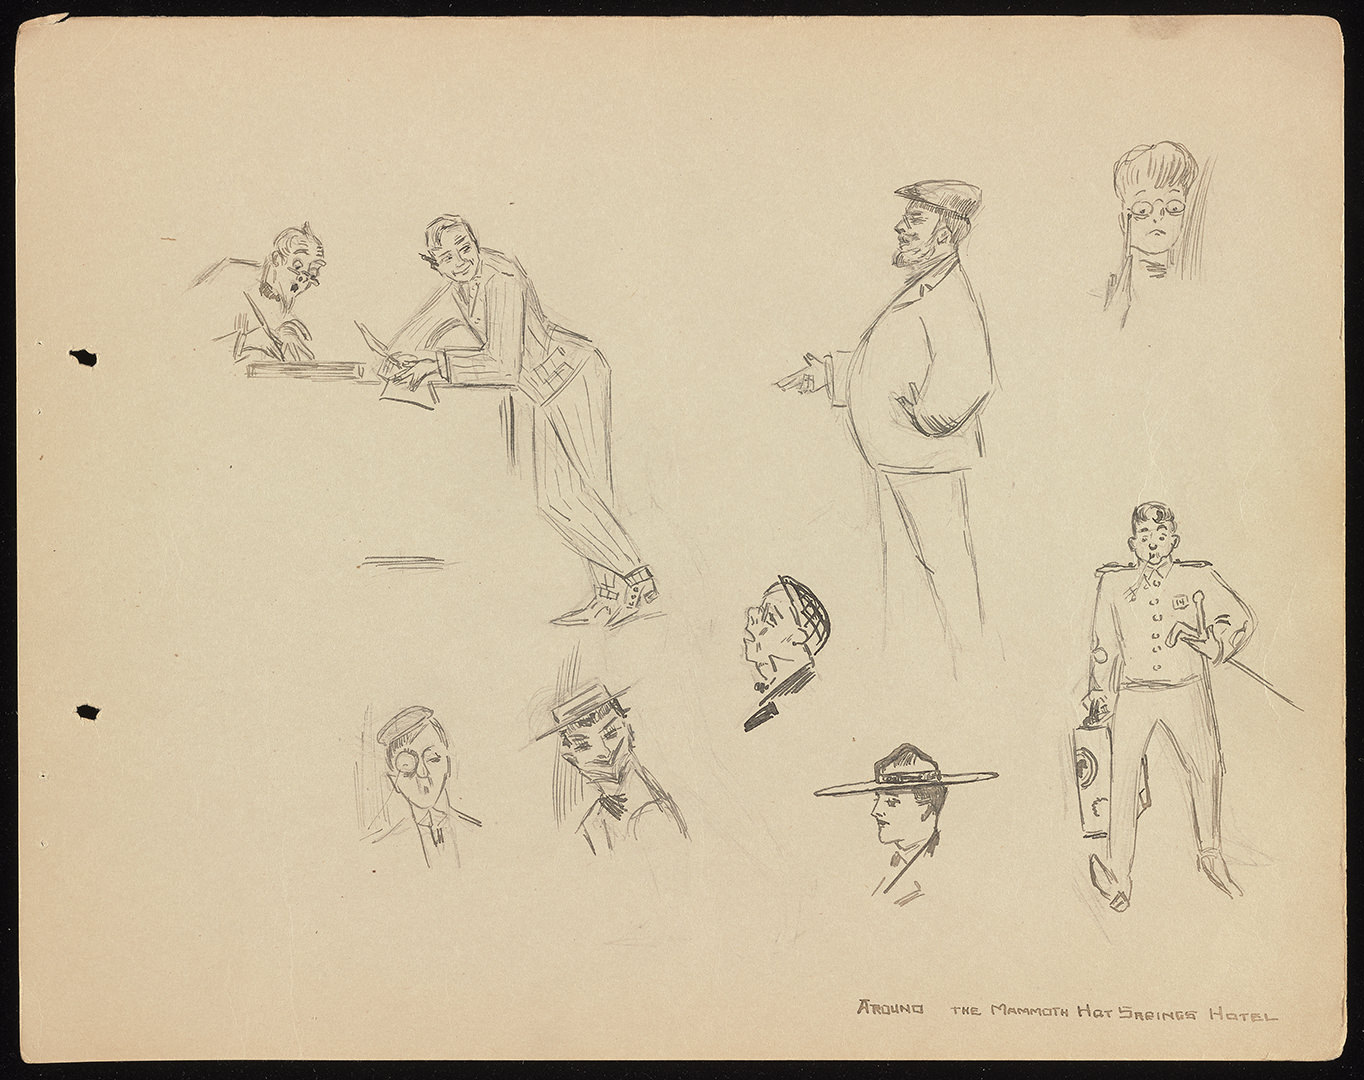 14
Around the Mammoth Hot Springs Hotel